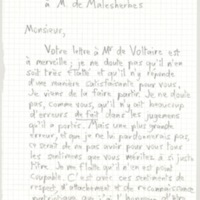 à M. de Malesherbes
Monsieur,
Votre lettre à Mr de Voltaire est
à merveille, je ne doute pas qu'il n'en
soit très flatté et qu'il n'y réponde
d'une manière satisfaisante pour vous.
Je viens de la faire partir. Je ne doute
pas, comme vous, qu'il n'y ait beaucoup
d'erreurs de fait dans les jugemens
qu'il a portés. Mais une plus grande
erreur, et que je ne lui pardonnerois pas,
ce seroit de ne pas avoir pour vous tous
les sentimens que vous méritez à si juste
titre. Je me flatte qu'il n'en est pas
coupable. C'est avec ces sentimens de
respect, d'attachement et de reconnoissance
que j'ai l'honneur d'être